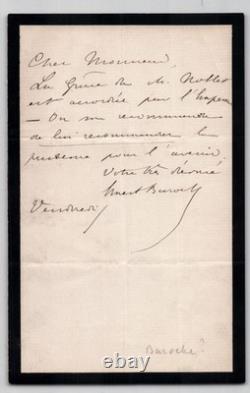 Cher Monsieur,
La Grâce de M. Nollet
est accordée par l'Empereur
— On me recommande
de lui recommander la
prudence pour l'avenir.
Votre très dévoué
Ernest Baroche
Vendredi
Baroche?
© ebay.com